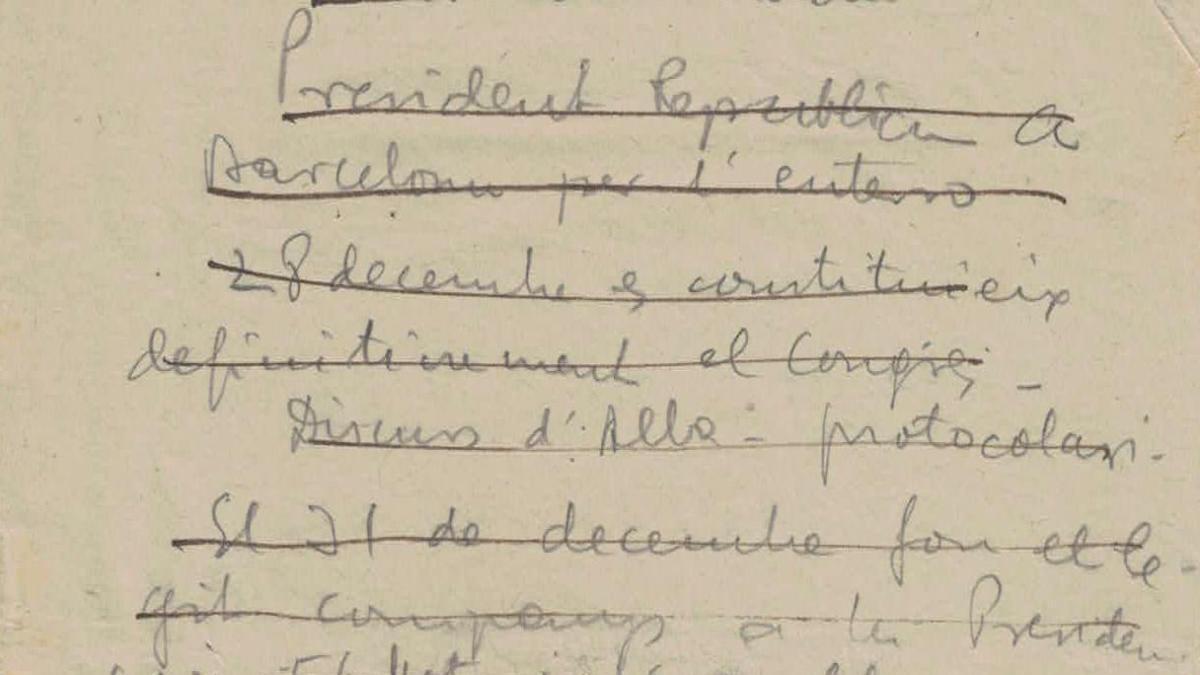 President República a
Barcelona per l'enterro
28 decembre es constitueix
definitivament el Congrés -
Discurs d'Alba - protocolari -
El 31 de decembre fou elle-
git Companys a la Presiden